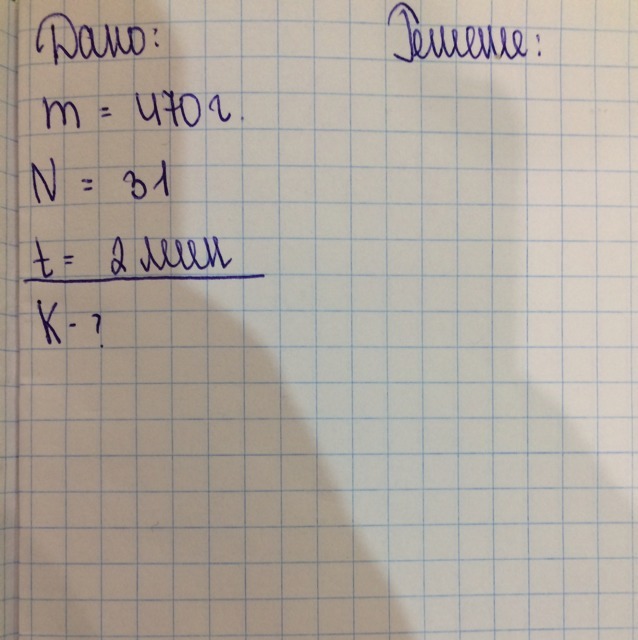 Дано:
Решение:
m = 470 г.
N = 31
t = 2 мин
K - ?